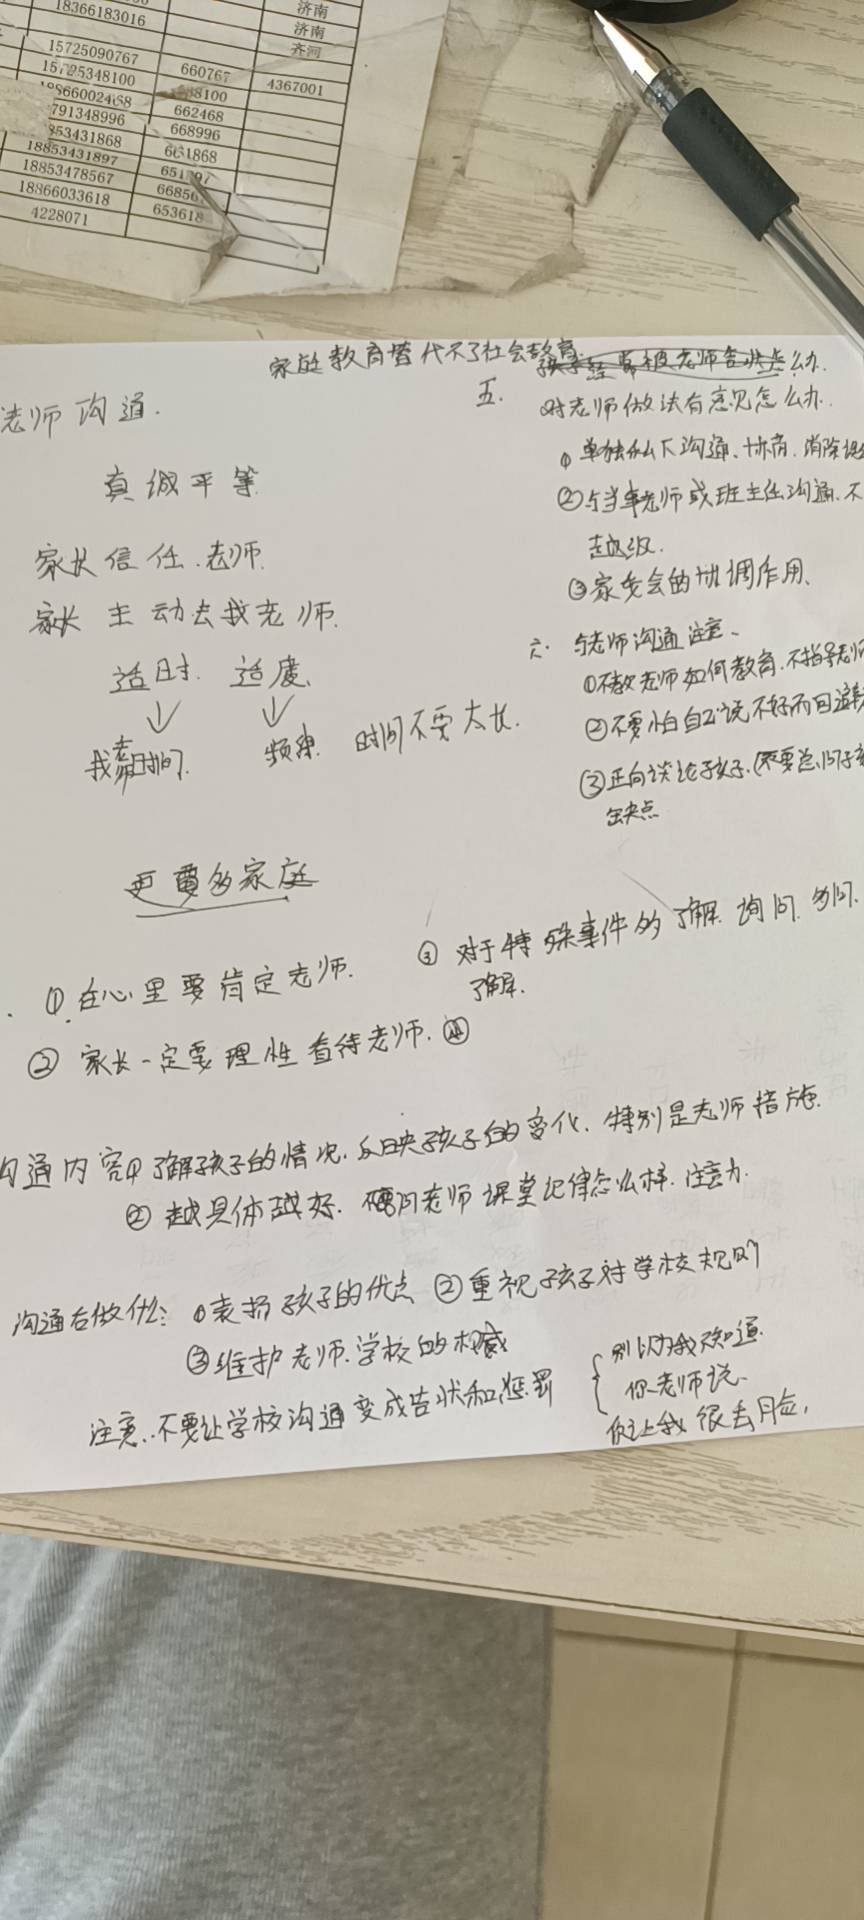 18366183016
济南
济南
齐河
15725090767 660767
15725348100 8100 4367001
662468
791348996 668996
853431868 661868
18853431897
18853478567
18866033618 653618
4228071
家庭教育替代不了社会教育
老师沟通.
真诚平等
家长信任老师.
家长主动去找老师.
适时. 适度.
找老师时间. 频率 时间不要太长.
更要多家庭
① 在心里要肯定老师.
② 家长一定要理性看待老师. ④
③ 对于特殊事件的了解. 询问. 多问.
了解.
沟通内容① 了解孩子的情况. 反映孩子的变化. 特别是老师措施.
② 越具体越好. 老师课堂纪律怎么样. 注意力.
沟通后做什么: ①表扬孩子的优点 ②重视孩子对学校规则
③维护老师.学校的权威
注意.不要让学校沟通变成告状和惩罚
别以为我不知道.
你老师说.
你让我很丢脸.
五. 孩子经常被老师告状怎么办.
对老师做法有意见怎么办.
① 单独私下沟通、协商. 消除
②与当事老师或班主任沟通. 不
越级.
③家委会的协调作用.
六. 与老师沟通注意.
①不教老师如何教育.不指导老师
②不要怕自己说不好而回避
③正向谈论孩子.(不要总问孩
缺点